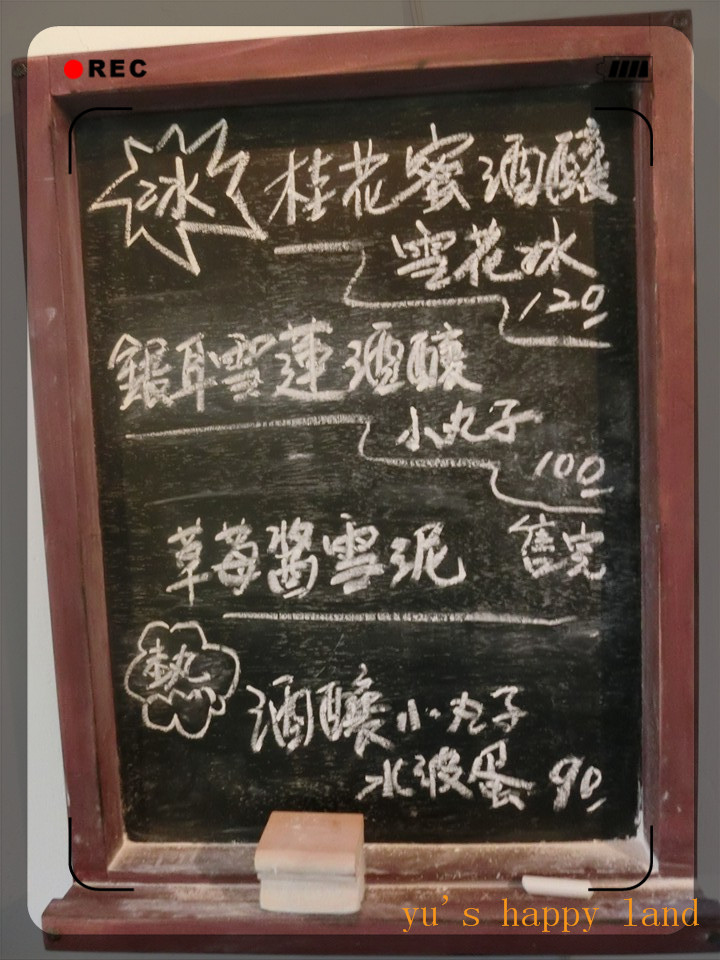 REC
冰 桂花蜜酒釀
雪花冰
120
銀耳雪蓮酒釀
小丸子
100
草莓醬雪泥 售完
熱
酒釀小丸子
水波蛋 90
yu's happy land